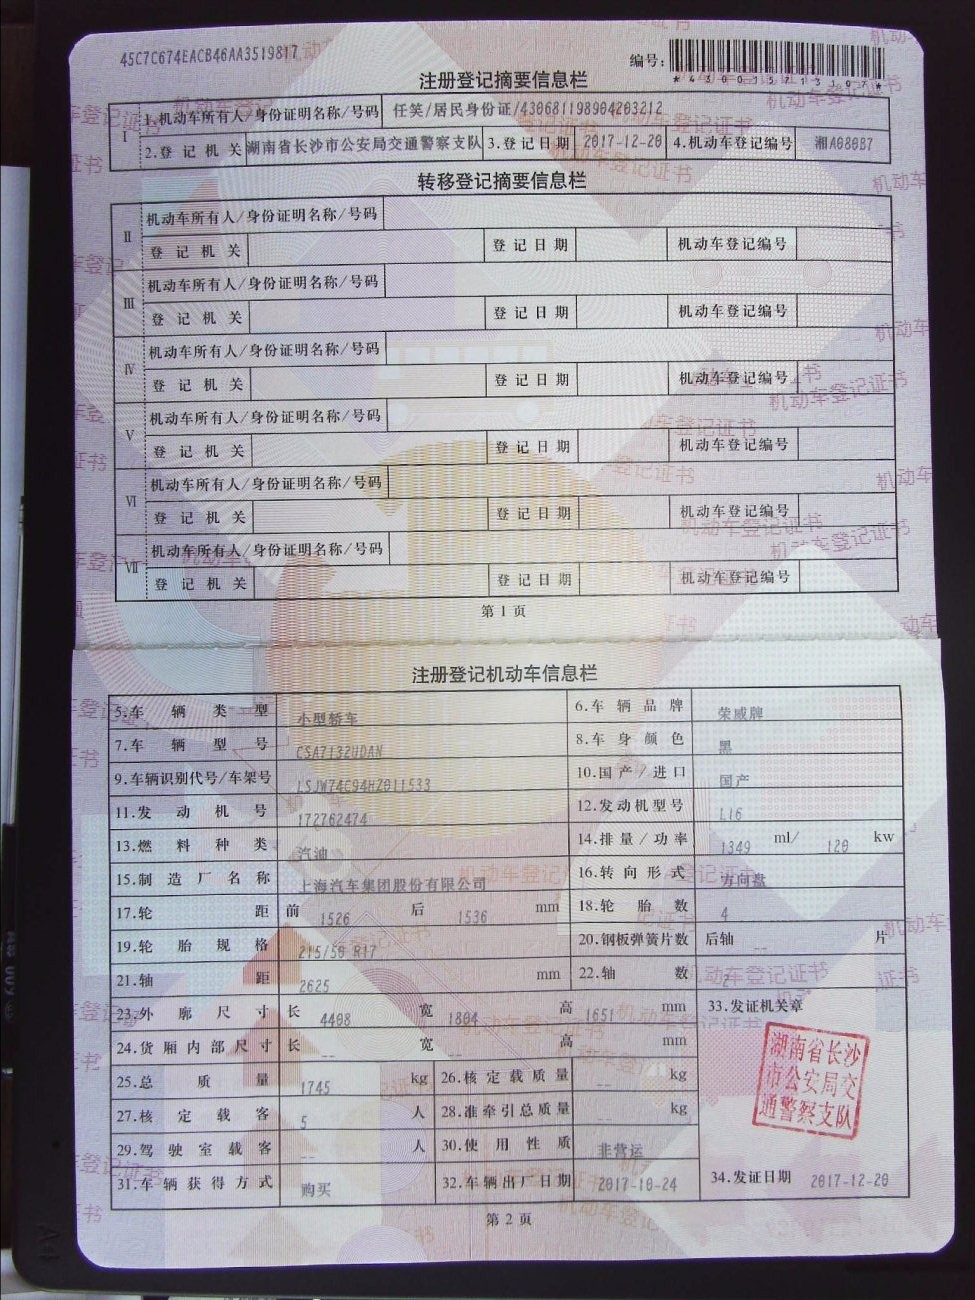 45C7C674EACB46AA3519817
编号:
*430015713107*
注册登记摘要信息栏
I 1.机动车所有人/身份证明名称/号码 任笑/居民身份证/430681198904203212
2.登记机关 湖南省长沙市公安局交通警察支队 3.登记日期 2017-12-20 4.机动车登记编号 湘A08087
转移登记摘要信息栏
II 机动车所有人/身份证明名称/号码
登记机关 登记日期 机动车登记编号
III 机动车所有人/身份证明名称/号码
登记机关 登记日期 机动车登记编号
IV 机动车所有人/身份证明名称/号码
登记机关 登记日期 机动车登记编号
V 机动车所有人/身份证明名称/号码
登记机关 登记日期 机动车登记编号
VI 机动车所有人/身份证明名称/号码
登记机关 登记日期 机动车登记编号
VII 机动车所有人/身份证明名称/号码
登记机关 登记日期 机动车登记编号
第1页
注册登记机动车信息栏
5.车辆类型 小型轿车 6.车辆品牌 荣威牌
7.车辆型号 CSA7132UDAN 8.车身颜色 黑
9.车辆识别代号/车架号 LSJW74C94HZ011533 10.国产/进口 国产
11.发动机号 172762474 12.发动机型号 L16
13.燃料种类 汽油 14.排量/功率 1349 ml/ 120 kw
15.制造厂名称 上海汽车集团股份有限公司 16.转向形式 方向盘
17.轮距 前 1526 后 1536 mm 18.轮胎数 4
19.轮胎规格 215/50 R17 20.钢板弹簧片数 后轴 -- 片
21.轴距 2625 mm 22.轴数 2
23.外廓尺寸 长 4408 宽 1804 高 1651 mm 33.发证机关章
24.货厢内部尺寸 长 -- 宽 -- 高 -- mm
湖南省长沙
市公安局交
通警察支队
25.总质量 1745 kg 26.核定载质量 -- kg
27.核定载客 5 人 28.准牵引总质量 -- kg
29.驾驶室载客 -- 人 30.使用性质 非营运
31.车辆获得方式 购买 32.车辆出厂日期 2017-10-24 34.发证日期 2017-12-20
第2页